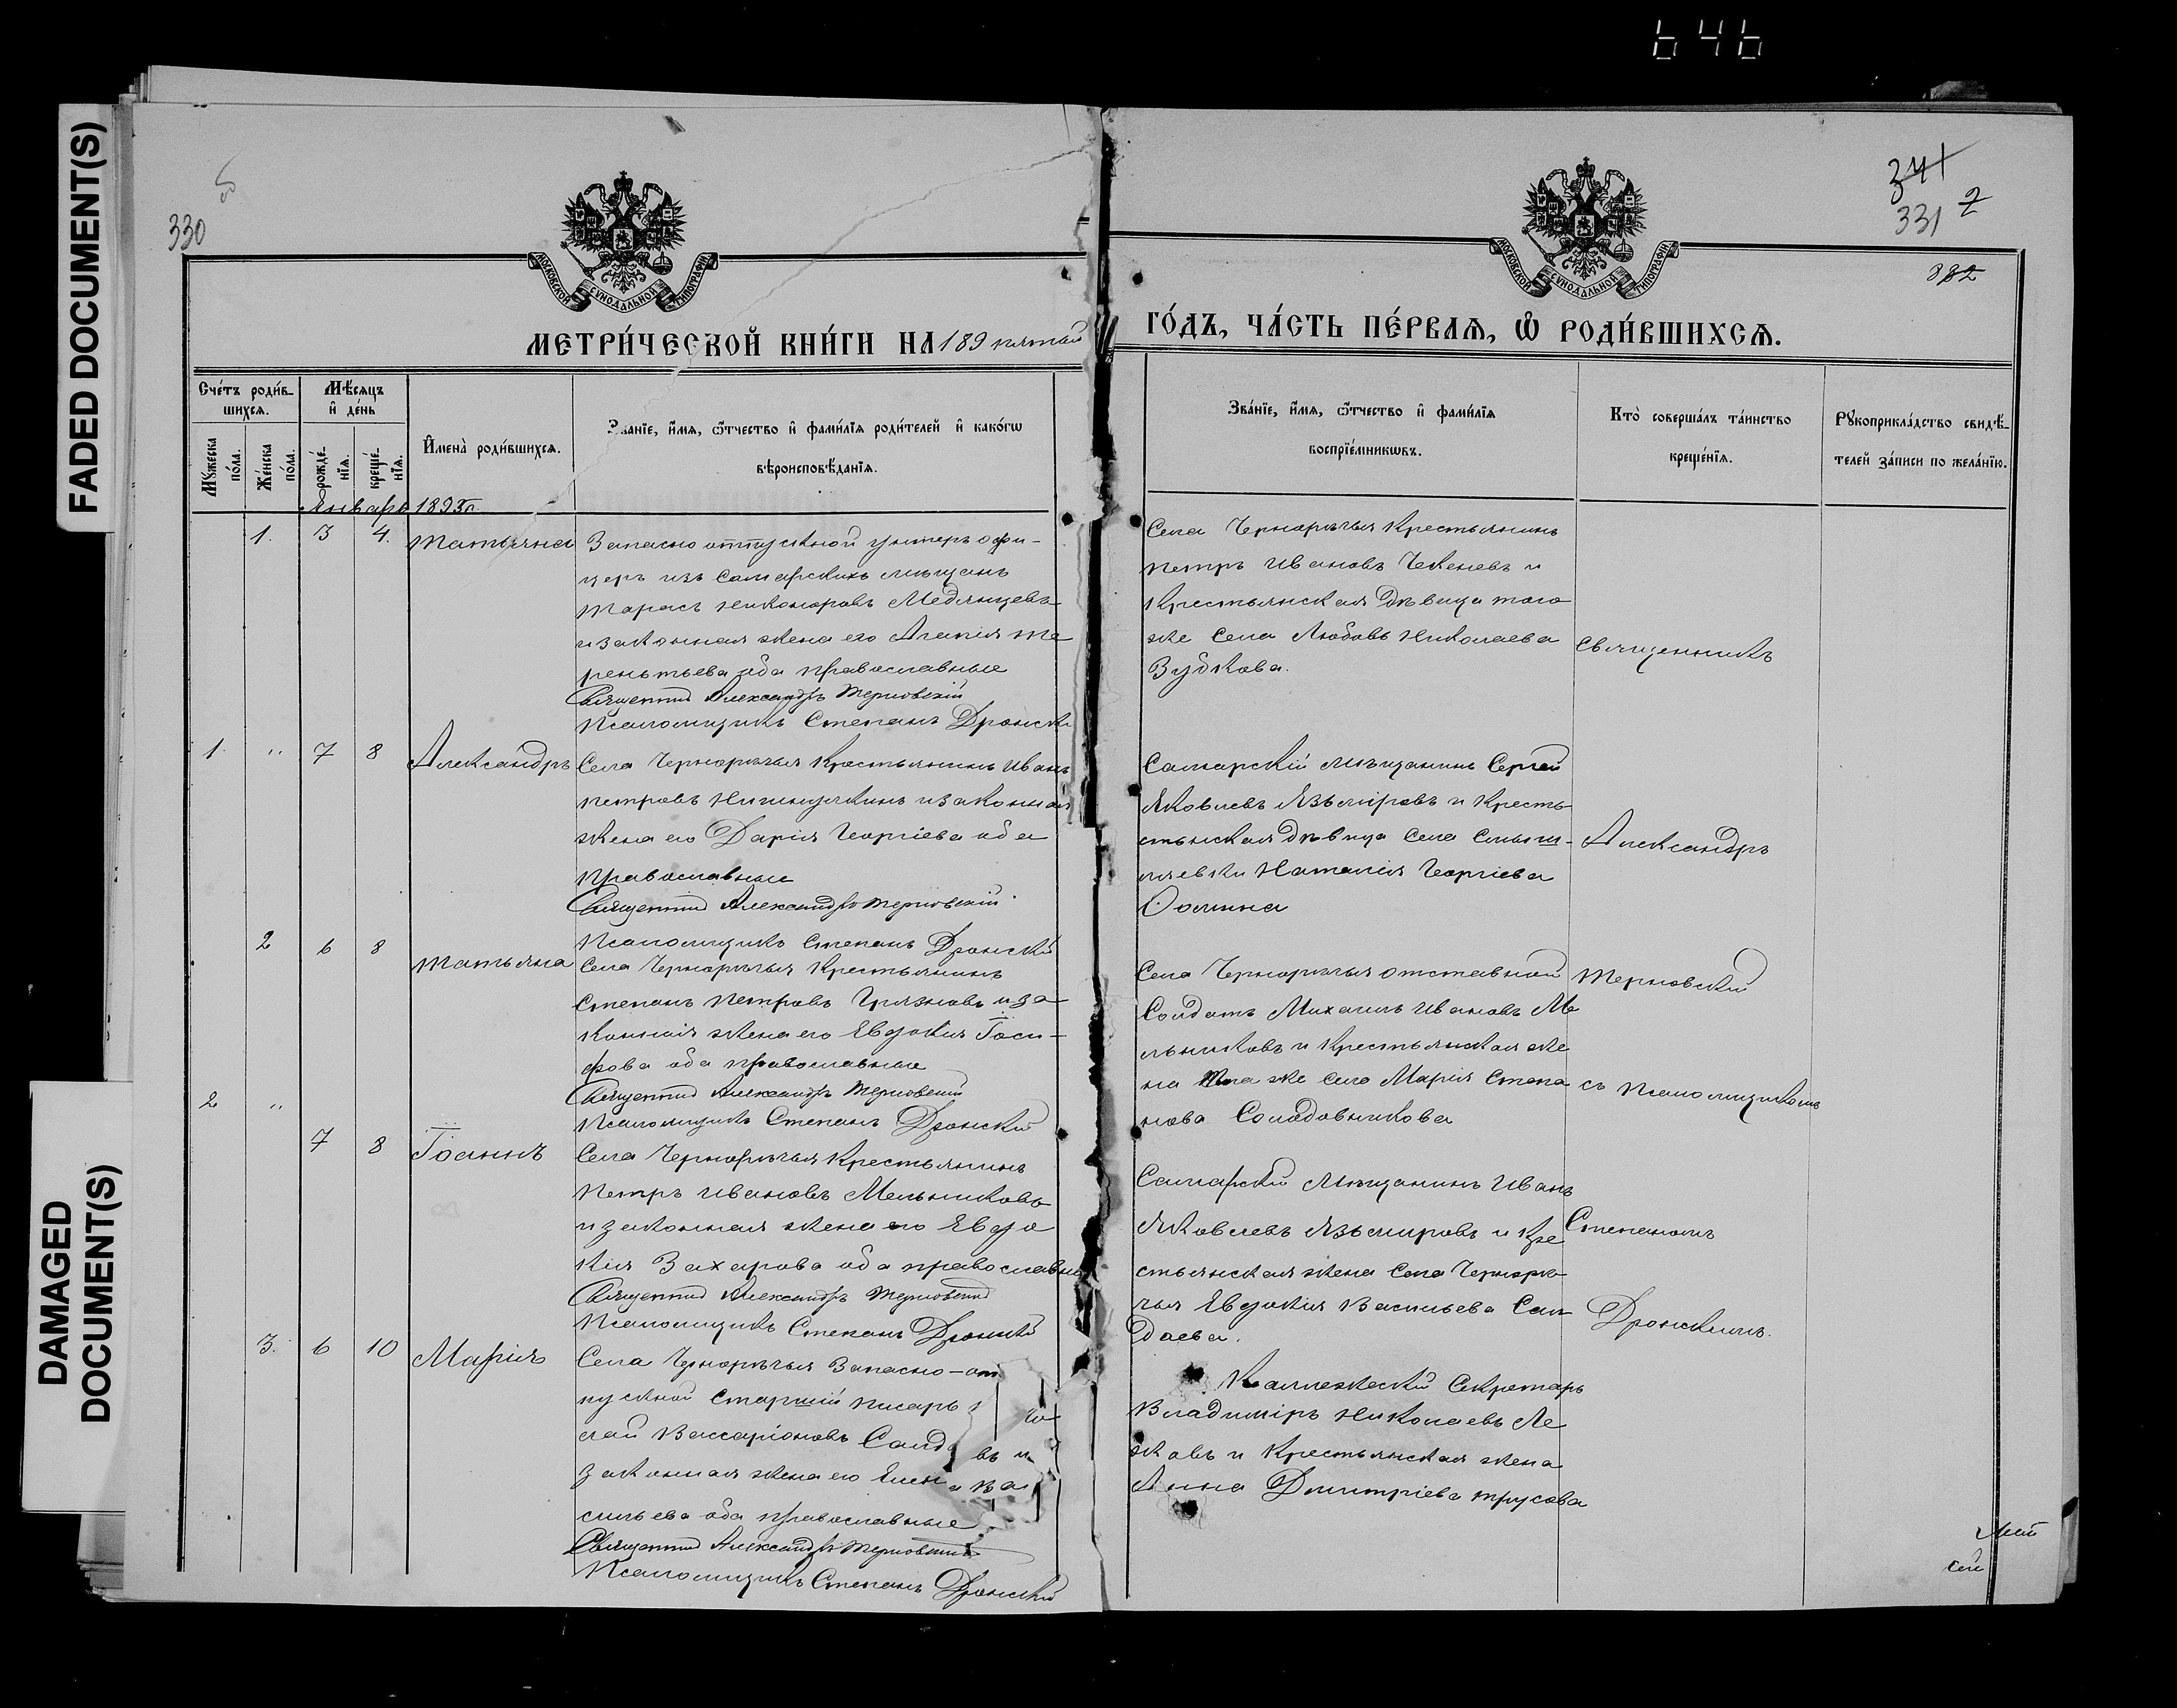 646
FADED DOCUMENT(S)
DAMAGED
DOCUMENT(S)
330
341
331 2
382
МОСКОВСКОЙ СѴНОДАЛЬНОЙ ТИПОГРАФІИ
МОСКОВСКОЙ СѴНОДАЛЬНОЙ ТИПОГРАФІИ
МЕТРИ́ЧЕСКОЙ КНИ́ГИ НА 189 пятый
ГО́ДЪ, ЧА́СТЬ ПЕ́РВАѦ, Ѡ҆ РОДИ́ВШИХСѦ.
Сче́тъ роди́в-
шихсѧ.
Мѣ́сѧцъ
и҆ де́нь
Мꙋ́жеска
по́ла.
Же́нска
по́ла.
рожде́-
нїѧ.
креще́-
нїѧ.
И҆мена̀ роди́вшихсѧ.
Зва́нїе, и҆́мѧ, ѻ҆́тчество и҆ фами́лїѧ роди́телей и҆ како́гѡ
вѣроисповѣ́данїѧ.
Зва́нїе, и҆́мѧ, ѻ҆́тчество и҆ фами́лїѧ
воспрїе́мникѡвъ.
Кто̀ соверша́лъ та́инство
креще́нїѧ.
Рꙋкоприкла́дство свидѣ́-
телей за́писи по жела́нїю.
Январь 1895 г.
1. 3 4. Татьяна
Запасно отпускной унтеръ офи-
церъ изъ Самарскихъ мѣщанъ
Тарасъ Никоноровъ Медянцевъ
и законная жена его Агапія Те
рентьева оба православные
Священникъ Александръ Терновскій
Псаломщикъ Степанъ Дронскі
Села Чернорѣчья Крестьянинъ
Петръ Ивановъ Чекеневъ и
Крестьянская Дѣвица того
же Села Любовь Николаева
Зубкова.
Священникъ
1. " 7 8 Александръ
Села Чернорѣчья Крестьянинъ Иванъ
Петровъ и законная
жена его Дарія Георгіева оба
православные
Священникъ Александръ Терновскій
Псаломщикъ Степанъ Дронскій
Самарскій мѣщанинъ Сергей
Яковлевъ Язьмировъ и Кресть
стьянская Дѣвица Села Смыш-
ляевки Наталія Георгіева
Александръ
2 6 8 Татьяна
Села Чернорѣчья Крестьянинъ
Степанъ Петровъ Грязновъ и за
конная жена его Евдокія Іоси-
фова оба православные
Священникъ Александръ Терновскій
Псаломщикъ Степанъ Дронскій
Села Чернорѣчья отставной
Солдатъ Михаилъ Ивановъ Ме
льниковъ и Крестьянская же
на того же села Марія Степа
нова Солодовникова
Терновскій
съ Псаломщикомъ
2 " 7 8 Іоаннъ
Села Чернорѣчья Крестьянинъ
Петръ Ивановъ Мельниковъ
и законная жена его Евдо
кія Захарова оба православны
Священникъ Александръ Терновскій
Псаломщикъ Степанъ Дронскій
Самарскій Мѣщанинъ Иванъ
Яковлевъ Язьмировъ и Кре
стьянская жена Села Чернорѣ
чья Евдокія Васильева Сал
даева.
Степаномъ
Дронскимъ.
3. 6 10 Марія
Села Чернорѣчья Запасно-от
пускной Старшій писарь
лай Виссаріоновъ Салд въ и
законная жена его Елен а Ва
сильева оба православные
Священникъ Александръ Терновскій
Псаломщикъ Степанъ Дронскій
Коллежескій Секретарь
Владиміръ Николаевъ Ле
жовъ и Крестьянская жена
Анна Дмитріева Трусова